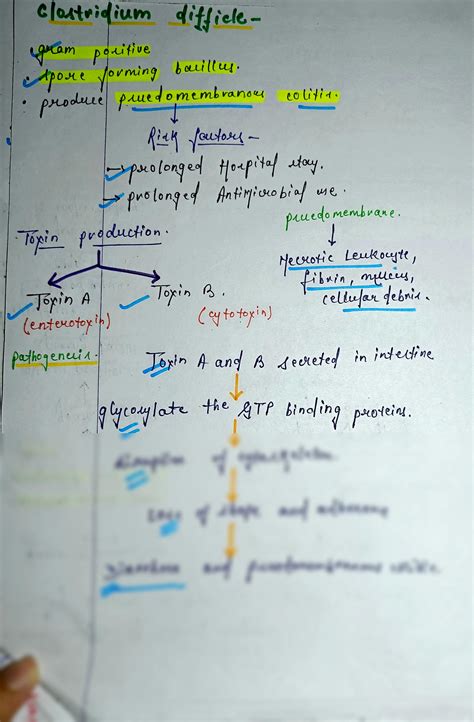 Clostridium difficle -
• gram positive
• spore forming bacillus.
• produce psuedomembranous colitis.
Risk factors -
→ prolonged Hospital stay.
→ prolonged Antimicrobial use.
psuedomembrane.
Necrotic Leukocyte,
fibrin, mucus,
cellular debris.
Toxin production.
Toxin A
(enterotoxin)
Toxin B.
(cytotoxin)
pathogenesis.
Toxin A and B secreted in intestine
glycosylate the GTP binding proteins.
of
Loss of shape and
and